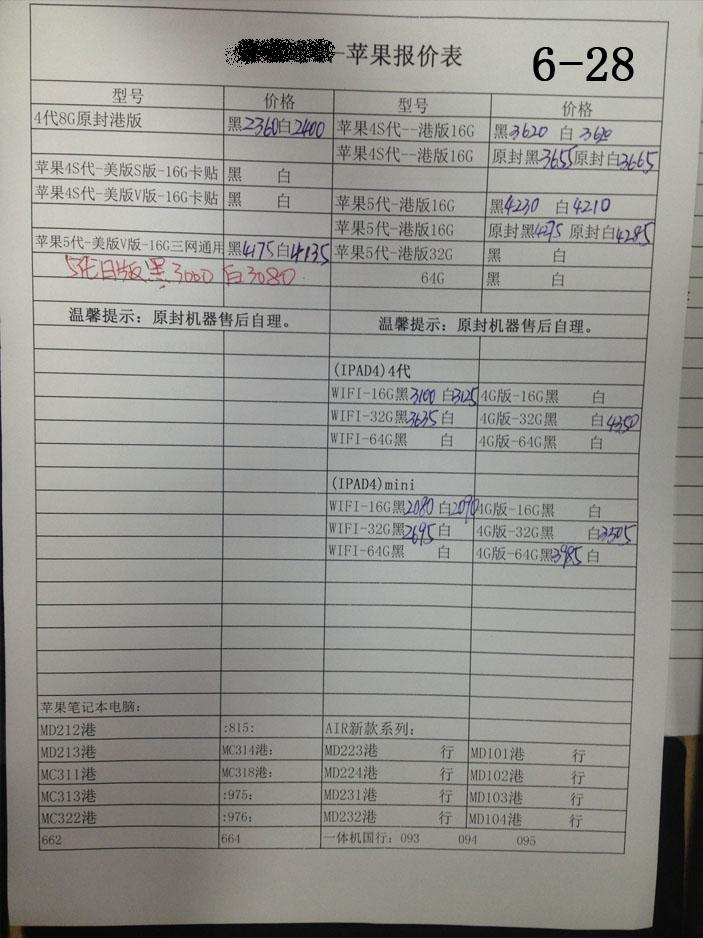 -苹果报价表 6-28
型号 价格 型号 价格
4代8G原封港版 黑2360白2400 苹果4S代--港版16G 黑3620 白3620
苹果4S代--港版16G 原封黑3655原封白3665
苹果4S代-美版S版-16G卡贴 黑 白
苹果4S代-美版V版-16G卡贴 黑 白 苹果5代-港版16G 黑4230 白4210
苹果5代-港版16G 原封黑4275 原封白4285
苹果5代-美版V版-16G三网通用 黑4175白4135 苹果5代-港版32G 黑 白
5代日版黑3000 白3080 64G 黑 白
温馨提示：原封机器售后自理。 温馨提示：原封机器售后自理。
(IPAD4)4代
WIFI-16G黑3100 白3125 4G版-16G黑 白
WIFI-32G黑3635白 4G版-32G黑 白4350
WIFI-64G黑 白 4G版-64G黑 白
(IPAD4)mini
WIFI-16G黑2080 白2090 4G版-16G黑 白
WIFI-32G黑2695白 4G版-32G黑 白3505
WIFI-64G黑 白 4G版-64G黑3985白
苹果笔记本电脑：
MD212港 :815: AIR新款系列：
MD213港 MC314港： MD223港 行 MD101港 行
MC311港 MC318港： MD224港 行 MD102港 行
MC313港 :975: MD231港 行 MD103港 行
MC322港 :976: MD232港 行 MD104港 行
662 664 一体机国行：093 094 095